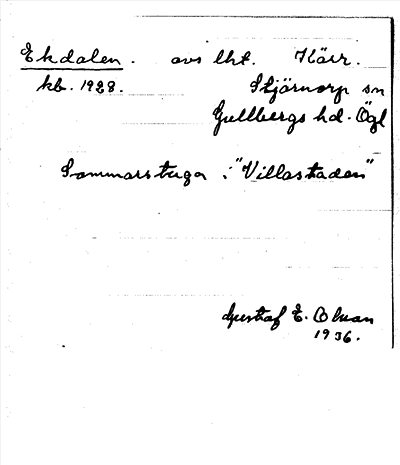 Ekdalen. avs lht. Kärr.
kb. 1928. Stjärnorp sn
Gullbergs hd. Ögl
Sommarstuga i "Villastaden"
Gustaf E. Olman
1936.